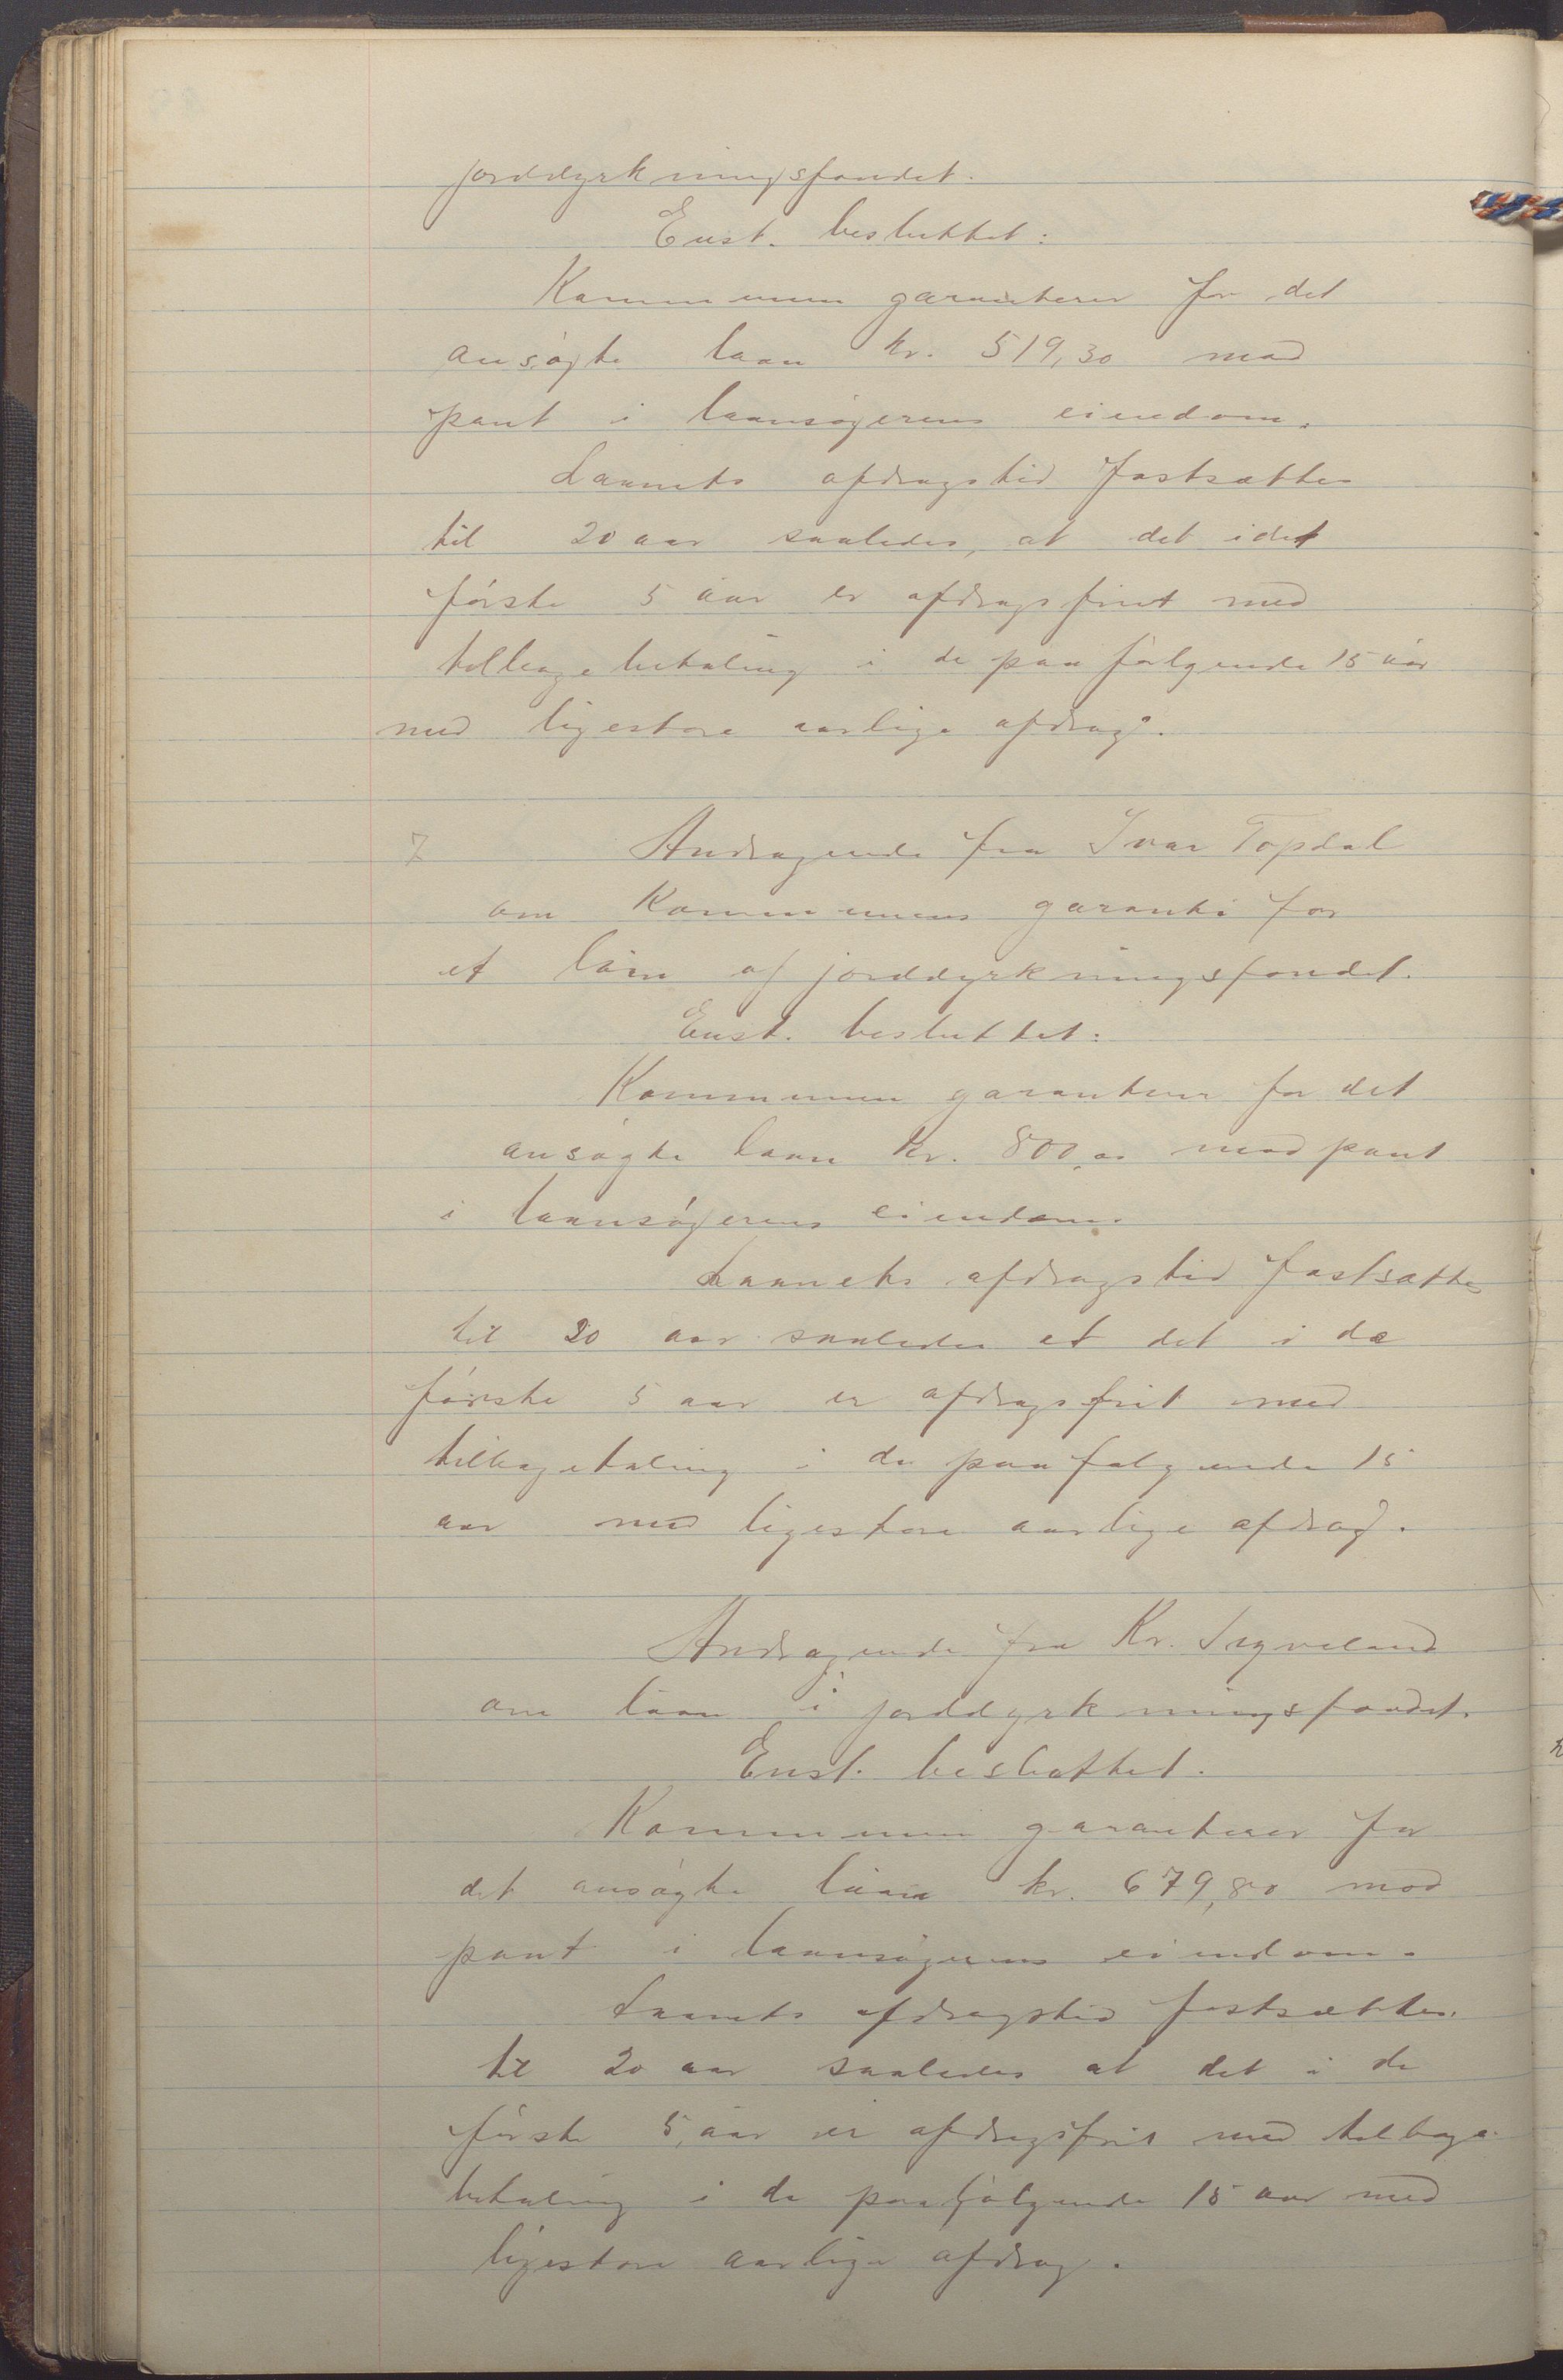 jorddyrkningsfondet.
Enst. besluttet:
Kommunen garanterer for det
ansøgte laan kr. 519,30 mod
pant i laansøgerens eiendom.
Laanets afdragstid fastsættes
til 20 aar saaledes, at det i det
første 5 aar er afdragsfrit med
tilbagebetaling i de paafølgende 15 aar
med ligestore aarlige afdrag.
7 Andragende fra Ivar Topdal
om Kommunens garanti for
et laan af jorddyrkningsfondet.
Enst. besluttet:
Kommunen garanterer for det
ansøgte laan kr. 800,00 mod pant
i laansøgerens eiendom.
Laanets afdragstid fastsættes
til 20 aar saaledes at det i de
første 5 aar er afdragsfrit med
tilbagetaling i de paafølgende 15
aar med ligestore aarlige afdrag.
Andragende fra Kr.
om laan i jorddyrkningsfondet.
Enst. besluttet.
Kommunen garanterer for
det ansøgte laan kr. 679,80 mod
pant i laansøgerens eiendom.
Laanets afdragstid fastsættes
til 20 aar saaledes at det i de
første 5 aar er afdragsfrit med tilbage
betaling i de paafølgende 15 aar med
ligestore aarlige afdrag.